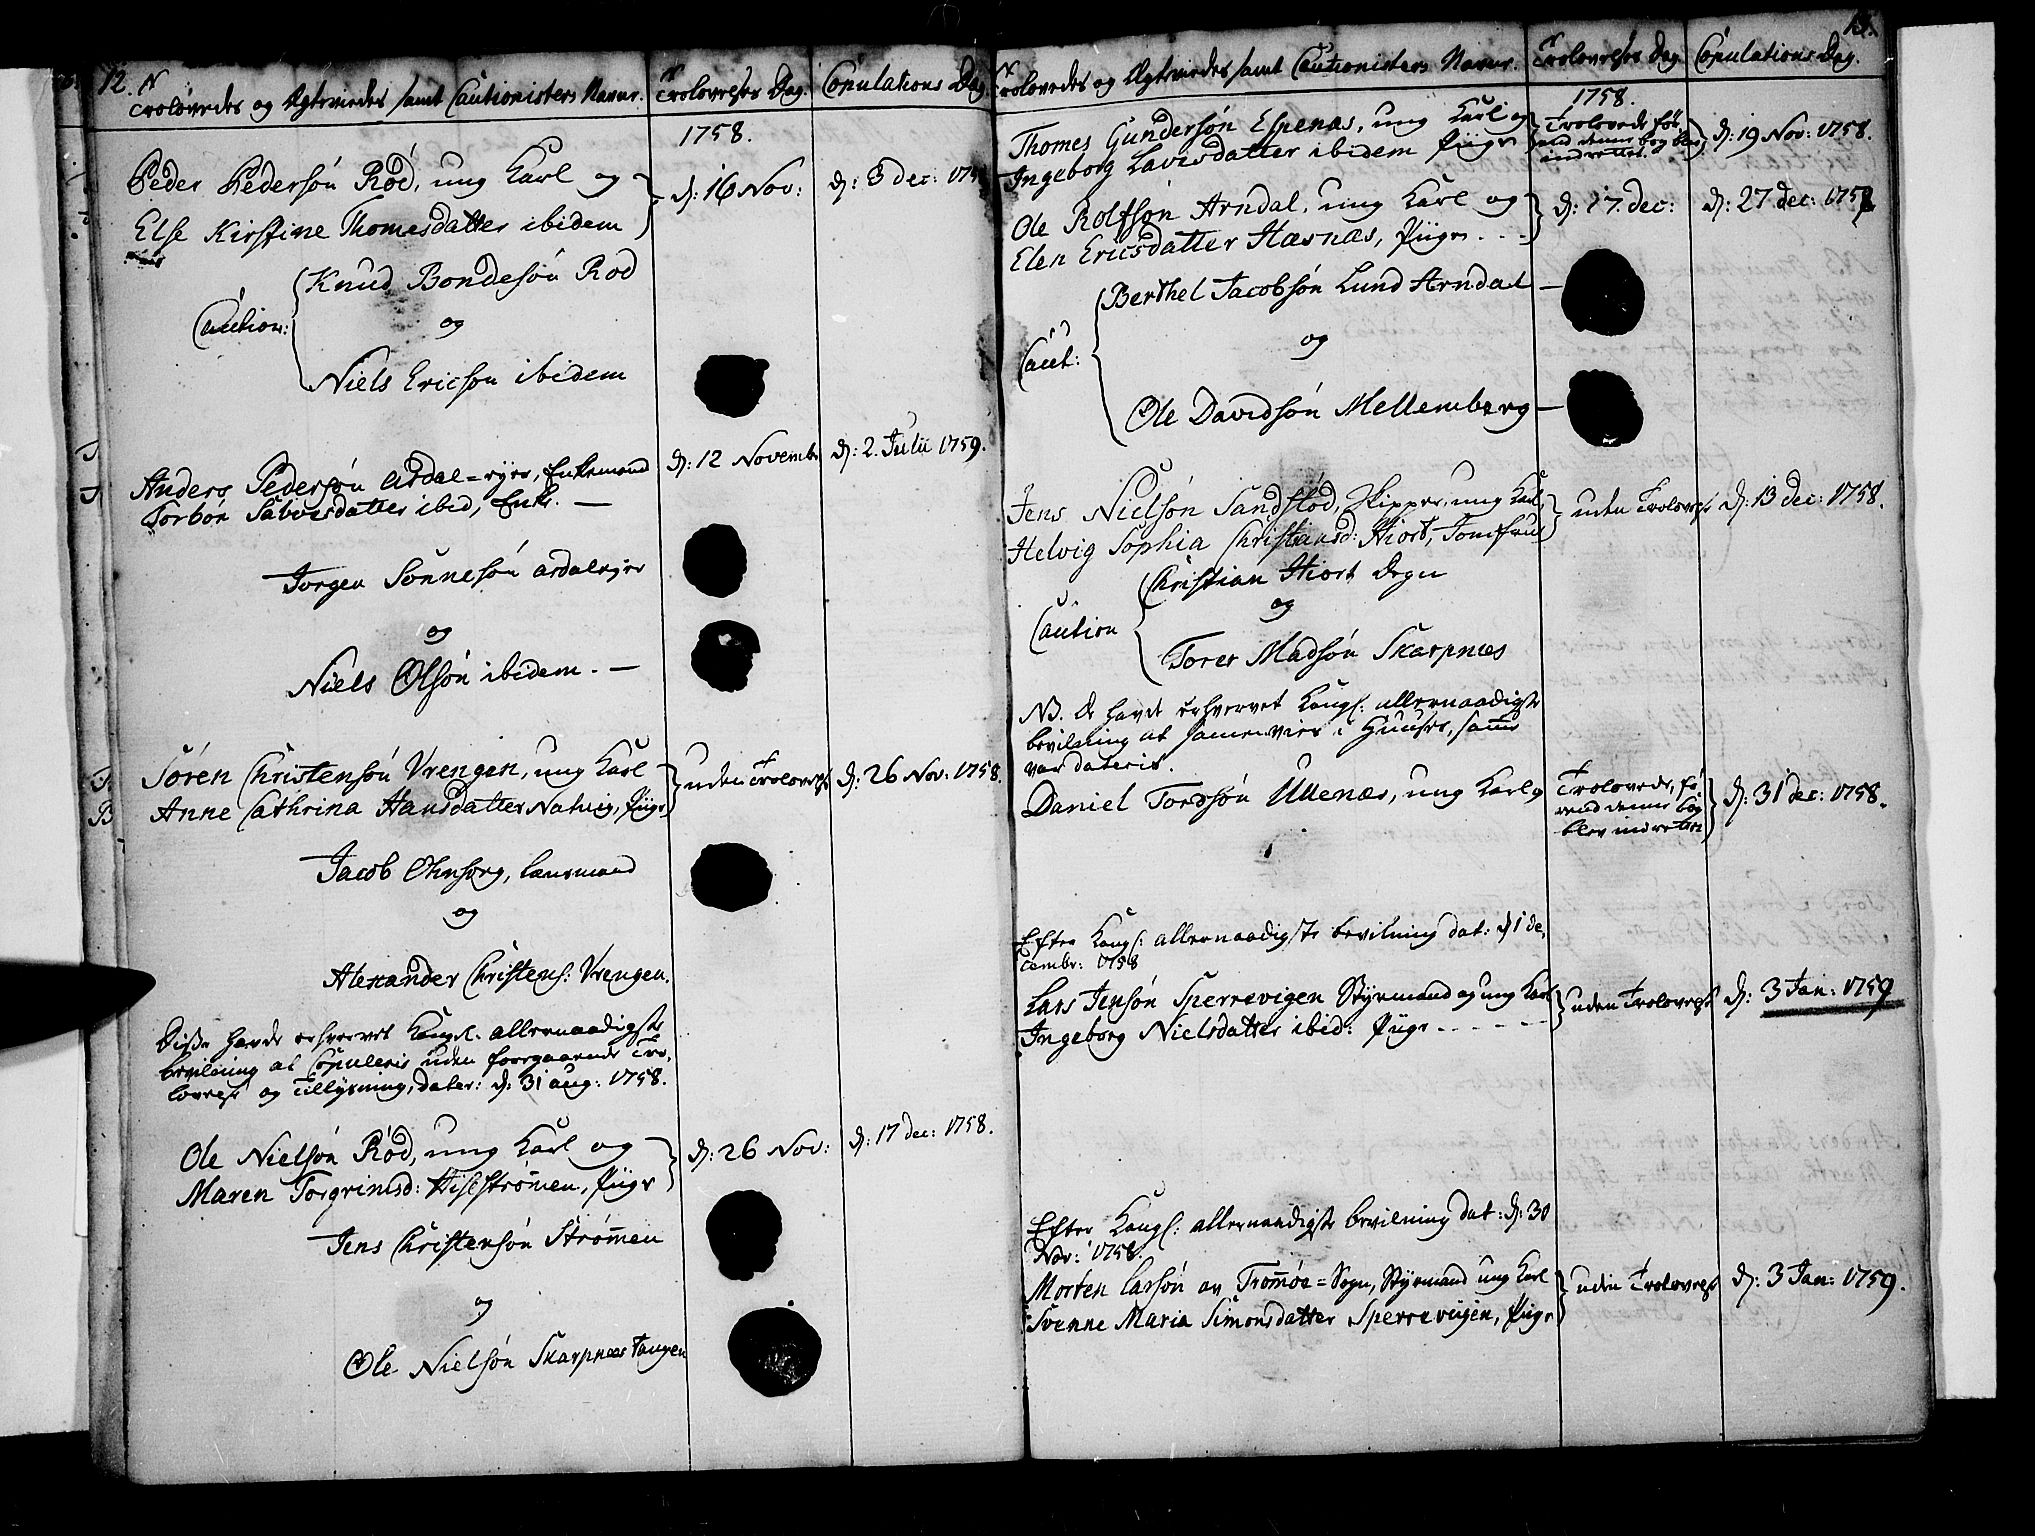 12.
Trolovedes og Ægteviedes samt Cautionisters Navne.
Trolovelses Dag.
Copulations Dag
1758.
Peder Pedersón Ród, ung Karl og
Else Kirstine Thomesdatter ibidem
d: 16 Nov:
d: 3 dec: 1758
Caution:
Knud Bondesón Rod
og
Niels Ericsón ibidem
Anders Pedersón Ardal=øyer, Enkemand
Torbór Salvesdatter ibid, Enke. —
d: 12 Novembr
d: 2. Julii 1759.
Jorgen Sonnesón ardaløjer
og
Niels Olsón ibidem. —
Sóren Christensón Vrengen, ung Karl
Anne Cathrina Hansdatter Natvig, Piige
uden Trolovelse
d: 26 Nov: 1758.
Jacob Ohnsorg, lænsmand
og
Alexander Christens: Vrengen.
Disse havde erhvervet Kongl: allernaadigste
bevilning at Copuleris uden foregaaende Tro-
lovelse og Tillysning, dater: d: 31 aug: 1758.
Ole Nielsón Ród, ung Karl og
Maren Torgrimsd: Hisestrómen, Piige
d: 26 Nov:
d: 17 dec: 1758.
Jens Christensón Strómen
og
Ole Nielsón Skarpnæs Tangen
13.
Trolovedes og Ægteviedes samt Cautionisters Navne.
Trolovelses Dag
Copulations Dag.
1758.
Thomes Gundersón Espenæs, ung Karl og
Ingeborg Lavesdatter ibidem Piige
Trolovede før
end denne bog blev
indrettet.
d: 19 Nov: 1758.
Ole Rolfsón Arndal, ung Karl og
Elen Ericsdatter Hasnæs, Piige - - -
d: 17. dec:
d: 27 dec: 1758
Caut:
Berthel Jacobsón Lund Arndal —
og
Ole Davidsón Mellemberg —
Jens Nielsón Sandstód, Skipper, ung Karl,
Helvig Sophia Christiansd: Hiort, Jomfrue
uden Trolovelse
d: 13 dec: 1758.
Caution
Christian Hiort Degn
og
Tores Madsón Skarpnæs
NB. de havde erhvervet Kongl: allernaadigste
bevilning at samenvies i Huuset, samme
var dateret.
Daniel Tordsón Ullenæs, ung Karl og
Trolovede, fó-
rend denne bog
blev indrettet
d: 31 dec: 1758.
Efter Kongl: allernaadigste bevilning dat: d 1 de-
cembr: 1758
Lars Jensón Sperrevigen Styrmand og ung Karl
Ingeborg Nielsdatter ibid: Piige - - - - - -
uden Trolovelse
d: 3 Jan: 1759
Efter Kongl: allernaadigste bevilning dat: d: 30
Nov: 1758.
Morten Larsón av Tromóe=Sogn, Styrmand ung Karl
Svenne Maria Simonsdatter Sperrevigen, Piige
uden Trolovelse
d: 3 Jan: 1759.